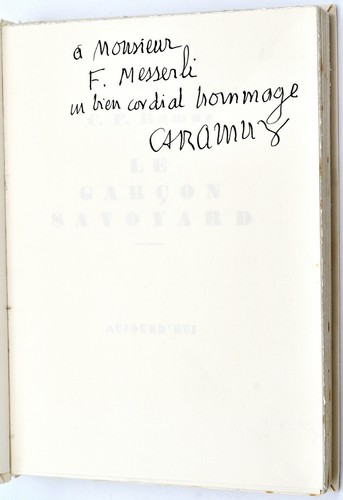 à Monsieur
F. Messerli
un bien cordial hommage
CFRAMUZ
C. F. Ramuz
LE
GARÇON
SAVOYARD
AUJOURD'HUI